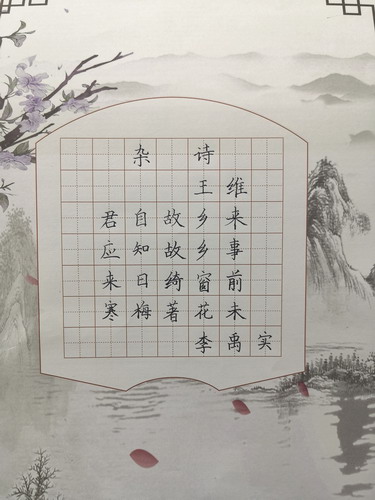 杂诗
王维
君自故乡来
应知故乡事
来日绮窗前
寒梅著花未
李禹实